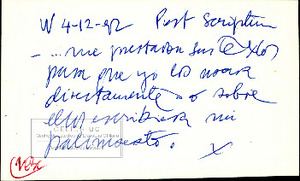 W 4-12-92 Post Scriptum
- ... me prestaron sus textos
para que yo los usara
directamente o sobre
ellos escribiera mi
palimpsesto. X